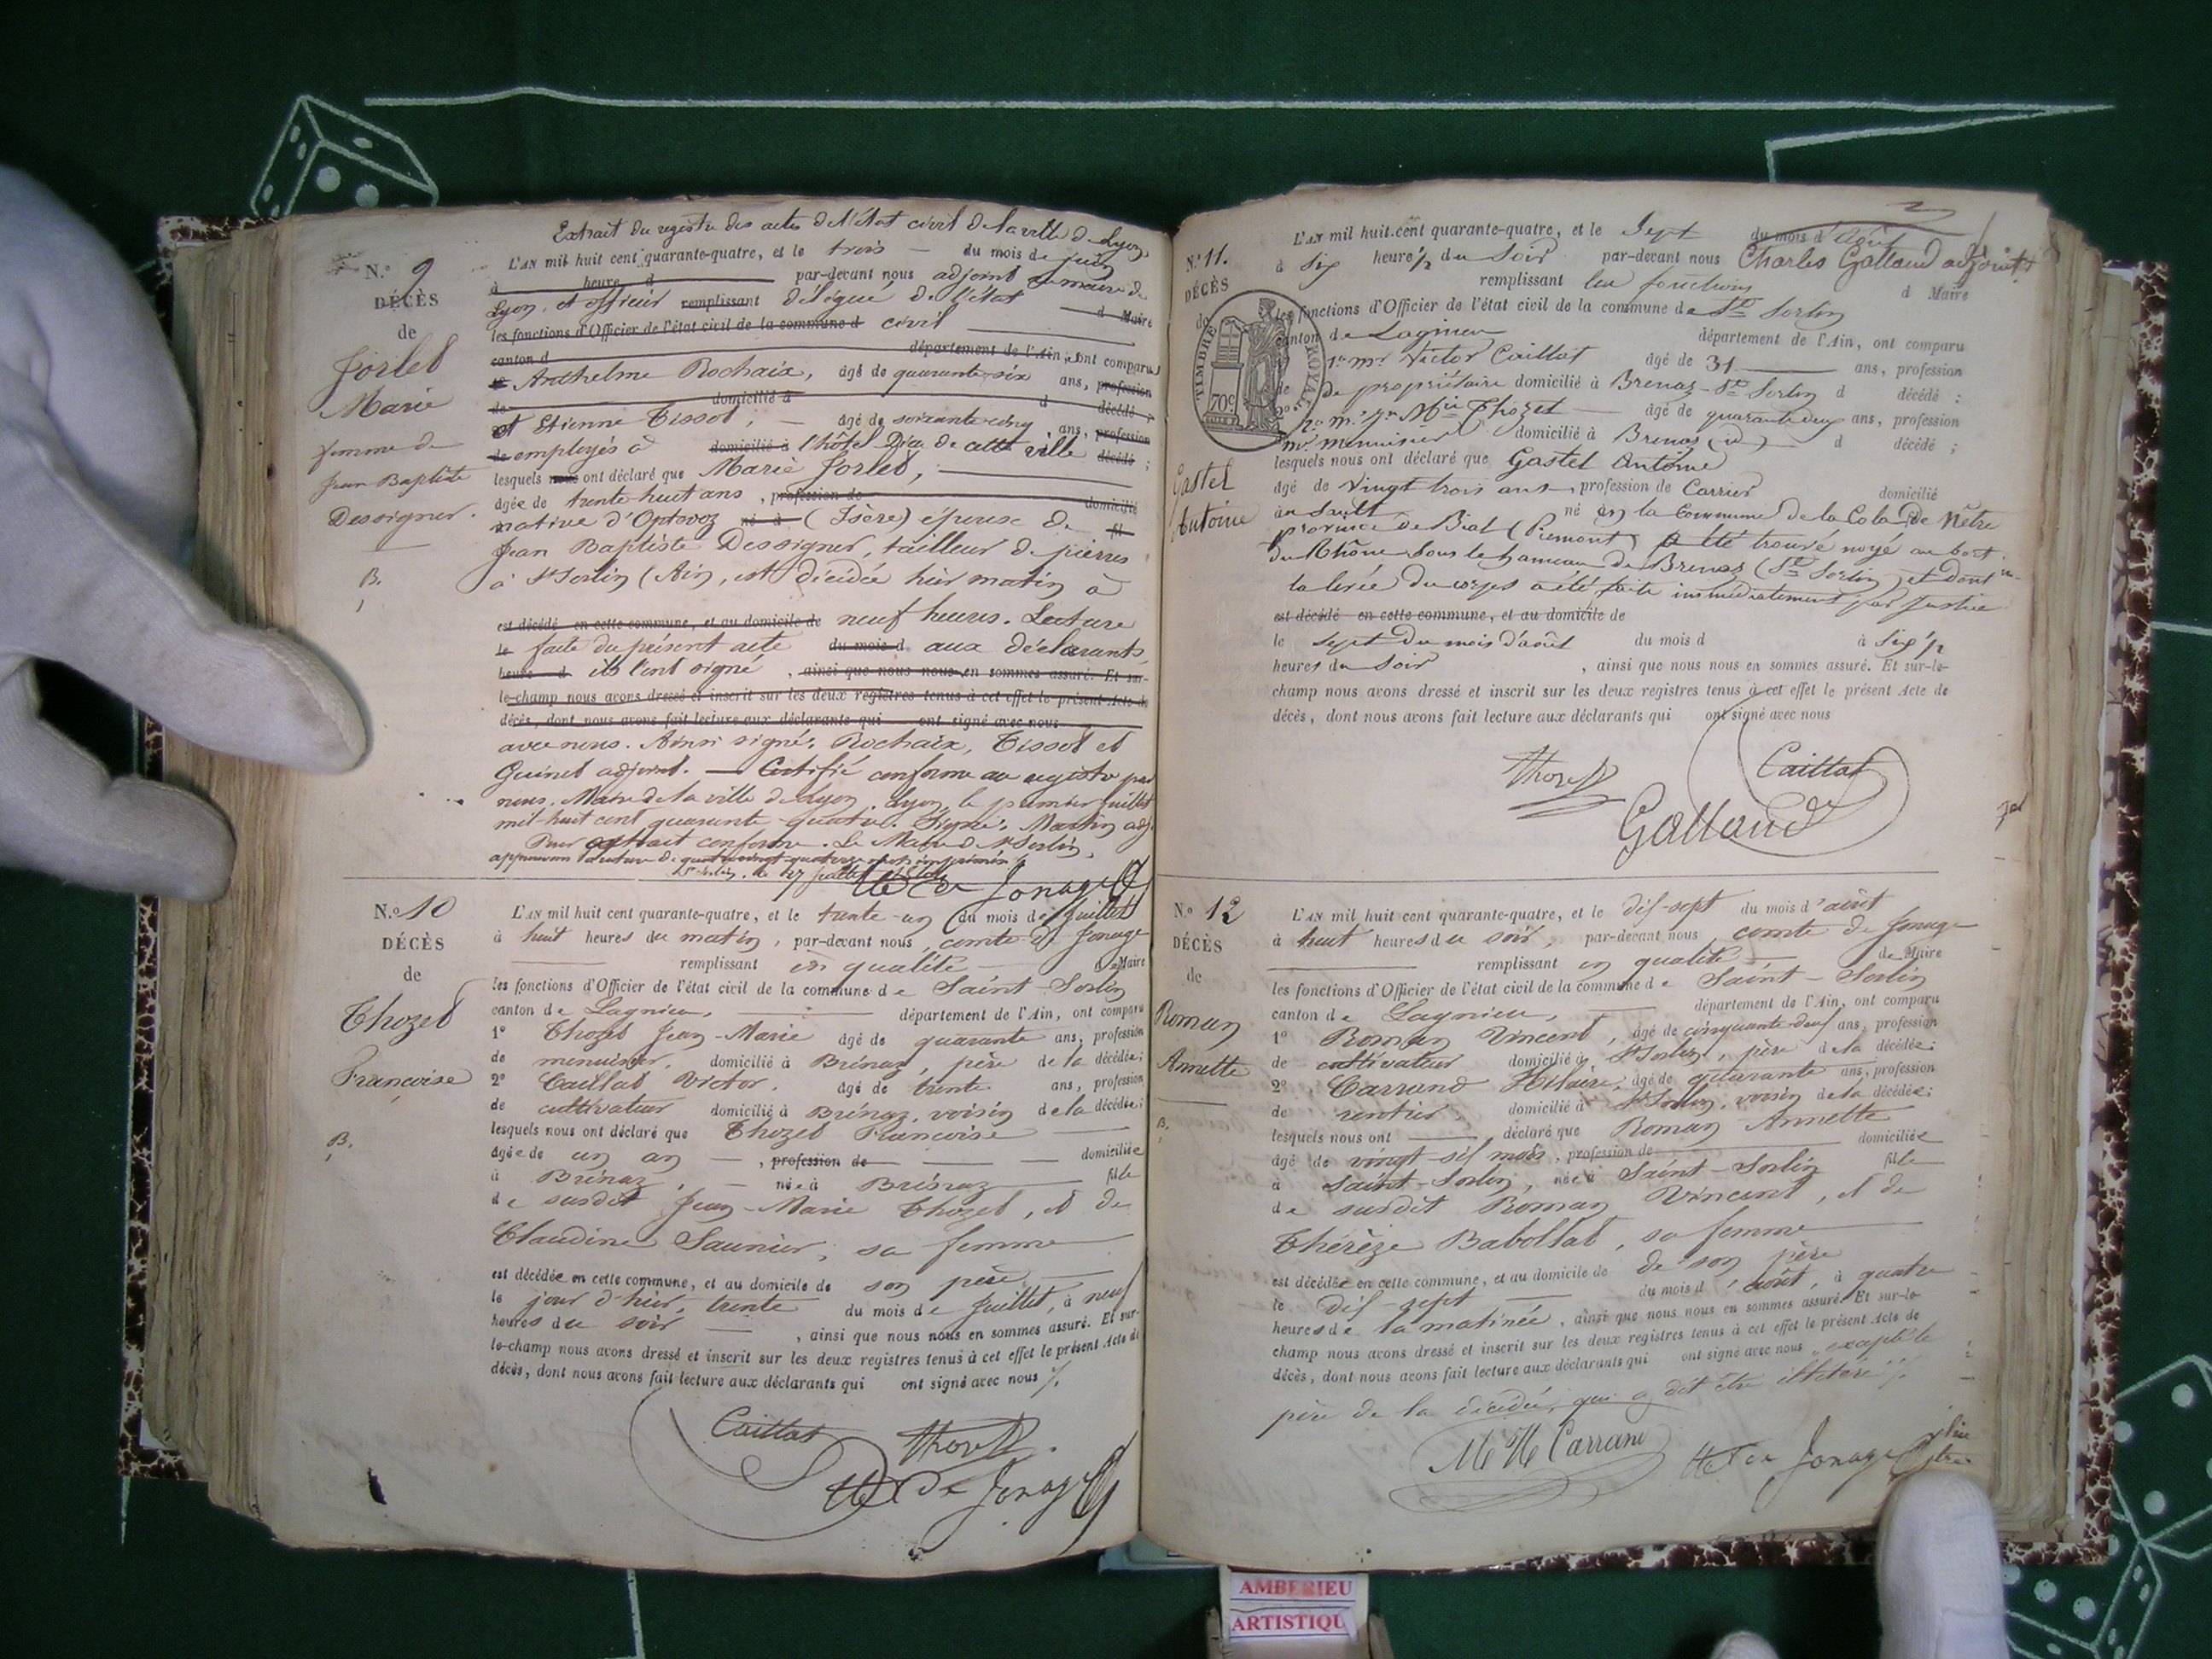 Extrait du registre des actes de l'état civil de la ville de Lyon
N.° 9
DÉCÈS
de
Forlet
Marie
femme de
Jean Baptiste
Dessigner.
B.
L'AN mil huit cent quarante-quatre, et le trois — du mois de juin
à heure d par-devant nous adjoint au maire de
Lyon, et officier remplissant délégué de l'état d Maire
les fonctions d'Officier de l'état civil de la commune d civil
canton d département de l'Ain, ont comparu
Anthelme Rochaix, âgé de quarante-six ans, profession
de domicilié à d décédé ;
et Etienne Tissot, — âgé de soixante-cinq ans, profession
de employés à domicilié à l'hôtel-Dieu de cette ville décédé ;
lesquels nous ont déclaré que Marie Forlet,
âgée de trente-huit ans, profession de domicilié
native d'Optevoz né à (Isère) épouse de fil
Jean Baptiste Dessigner, tailleur de pierres
à St Sorlin (Ain), est décédée hier matin à
est décédé en cette commune, et au domicile de neuf heures. Lecture
le faite du présent acte du mois d aux déclarants,
heure d ils l'ont signé, ainsi que nous nous en sommes assuré. Et sur-
le-champ nous avons dressé et inscrit sur les deux registres tenus à cet effet le présent Acte de
décès, dont nous avons fait lecture aux déclarants qui ont signé avec nous
avec nous. Ainsi signé: Rochaix, Tissot et
Guinet adjoint. — Certifié conforme au registre par
nous, Maire de la ville de Lyon. Lyon, le premier juillet
mil-huit cent quarante-quatre. Signé: Martin adj.
Pour extrait conforme. Le Maire de St Sorlin,
St Sorlin, le 27 juillet
de Jonage
N.° 10
DÉCÈS
de
Thozet
Françoise
B.
L'AN mil huit cent quarante-quatre, et le trente-un du mois de juillet
à huit heures du matin, par-devant nous comte de Jonage
remplissant en qualité — de Maire
les fonctions d'Officier de l'état civil de la commune de Saint-Sorlin
canton de Lagnieu, département de l'Ain, ont comparu
1° Thozet Jean-Marie âgé de quarante ans, profession
de menuisier, domicilié à Brénaz, père de la décédée;
2° Caillat Victor, âgé de trente ans, profession
de cultivateur domicilié à Brénaz, voisin de la décédée;
lesquels nous ont déclaré que Thozet Françoise
âgée de un an —, profession de — domiciliée
à Brénaz, — née à Brénaz fille
de susdit Jean-Marie Thozet, et de
Claudine Saunier, sa femme
est décédée en cette commune, et au domicile de son père
le jour d'hier, trente du mois de Juillet, à neuf
heures du soir —, ainsi que nous nous en sommes assuré. Et sur-
le-champ nous avons dressé et inscrit sur les deux registres tenus à cet effet le présent Acte de
décès, dont nous avons fait lecture aux déclarants qui ont signé avec nous ./.
Caillat Thozet
de Jonage
N.° 11.
DÉCÈS
de
TIMBRE ROYAL
70c
Gastel
Antoine
L'AN mil huit cent quarante-quatre, et le Sept du mois d'Août
à Six heures ½ du Soir par-devant nous Charles Galland adjoint
remplissant les fonctions d Maire
les fonctions d'Officier de l'état civil de la commune de St Sorlin
canton de Lagnieu département de l'Ain, ont comparu
1° mr Victor Caillat âgé de 31 ans, profession
de propriétaire domicilié à Brenaz-St Sorlin d décédé ;
2° mr Thozet — âgé de quarante deux ans, profession
menuisier domicilié à Brenaz (id) d décédé ;
lesquels nous ont déclaré que Gastel Antoine
âgé de Vingt trois ans, profession de Carrier domicilié
au Sault né en la Commune de la
province de (Piemont) a été trouvé noyé au bort
du Rhône Sous le hameau de Brenaz (St Sorlin) et dont
la levée du corps a été faite immédiatement par Justice
est décédé en cette commune, et au domicile de
le sept du mois d'août du mois d à Six ½
heures du Soir, ainsi que nous nous en sommes assuré. Et sur-le-
champ nous avons dressé et inscrit sur les deux registres tenus à cet effet le présent Acte de
décès, dont nous avons fait lecture aux déclarants qui ont signé avec nous
Thozet Caillat
Galland
N.° 12
DÉCÈS
de
Roman
Annette
B.
L'AN mil huit cent quarante-quatre, et le dix-sept du mois d'août
à huit heures du soir, par-devant nous comte de Jonage
remplissant en qualité — de Maire
les fonctions d'Officier de l'état civil de la commune de Saint-Sorlin
canton de Lagnieu, département de l'Ain, ont comparu
1° Roman Vincent, âgé de cinquante-deux ans, profession
de cultivateur domicilié à St Sorlin, père de la décédée;
2° Carrand Hilaire, âgé de quarante ans, profession
de rentier, domicilié à St Sorlin, voisin de la décédée;
lesquels nous ont — déclaré que Roman Annette
âgé de vingt-six mois, profession de domiciliée
à Saint-Sorlin, née à Saint-Sorlin fille
de susdit Roman Vincent, et de
Thérèze Babollat, sa femme
est décédée en cette commune, et au domicile de de son père
le dix-sept — du mois d'août, à quatre
heures de la matinée, ainsi que nous nous en sommes assuré. Et sur-le-
champ nous avons dressé et inscrit sur les deux registres tenus à cet effet le présent Acte de
décès, dont nous avons fait lecture aux déclarants qui ont signé avec nous, excepté le
père de la décédée, qui a dit être illétéré ./.
Carrand de Jonage
AMBERIEU
ARTISTIQU